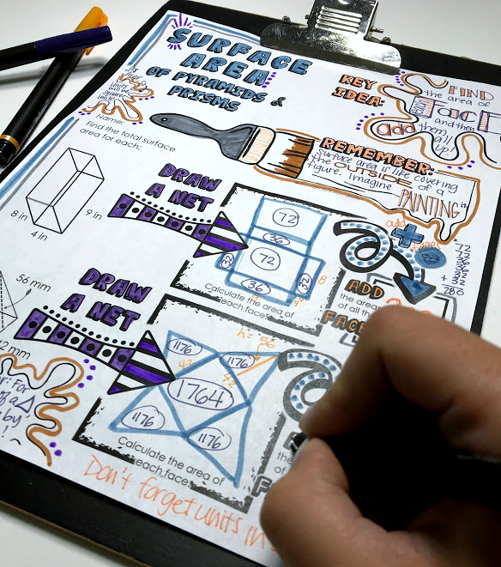 SURFACE
AREA
OF PYRAMIDS &
PRISMS
KEY
IDEA:
FIND
the area of
FACE
and then
add them
all up!
Name:
Find the total surface
area for each:
REMEMBER:
Surface area is like covering
the OUTSIDE of a
figure. Imagine
PAINTING
DRAW
A NET
8 in
4 in
9 in
72
36
32
72
32
36
8
Calculate the area of
each face.
add
72
+ 32
288
ADD
the area
of all the
FACE
DRAW
A NET
56 mm
42 mm
1176
1176
h= 56
42
1764
1176
1176
Calculate the area of
each face.
the
of
For
of a
by
Don't forget units in